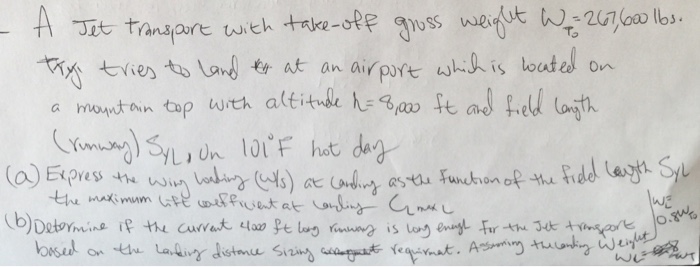 - A Jet transport with take-off gross weight W_To = 267,600 lbs.
tries to land at an airport which is located on
a mountain top with altitude h = 8,000 ft and field length
(runway) S_FL, on 101°F hot day
(a) Express the wing loading (W/S) at landing as the function of the field length S_FL
the maximum lift coefficient at landing C_L max L
(b) Determine if the current 4100 ft long runway is long enough for the Jet transport
based on the landing distance sizing requirment. Assuming the landing Weight
W_L = 0.8 W_To